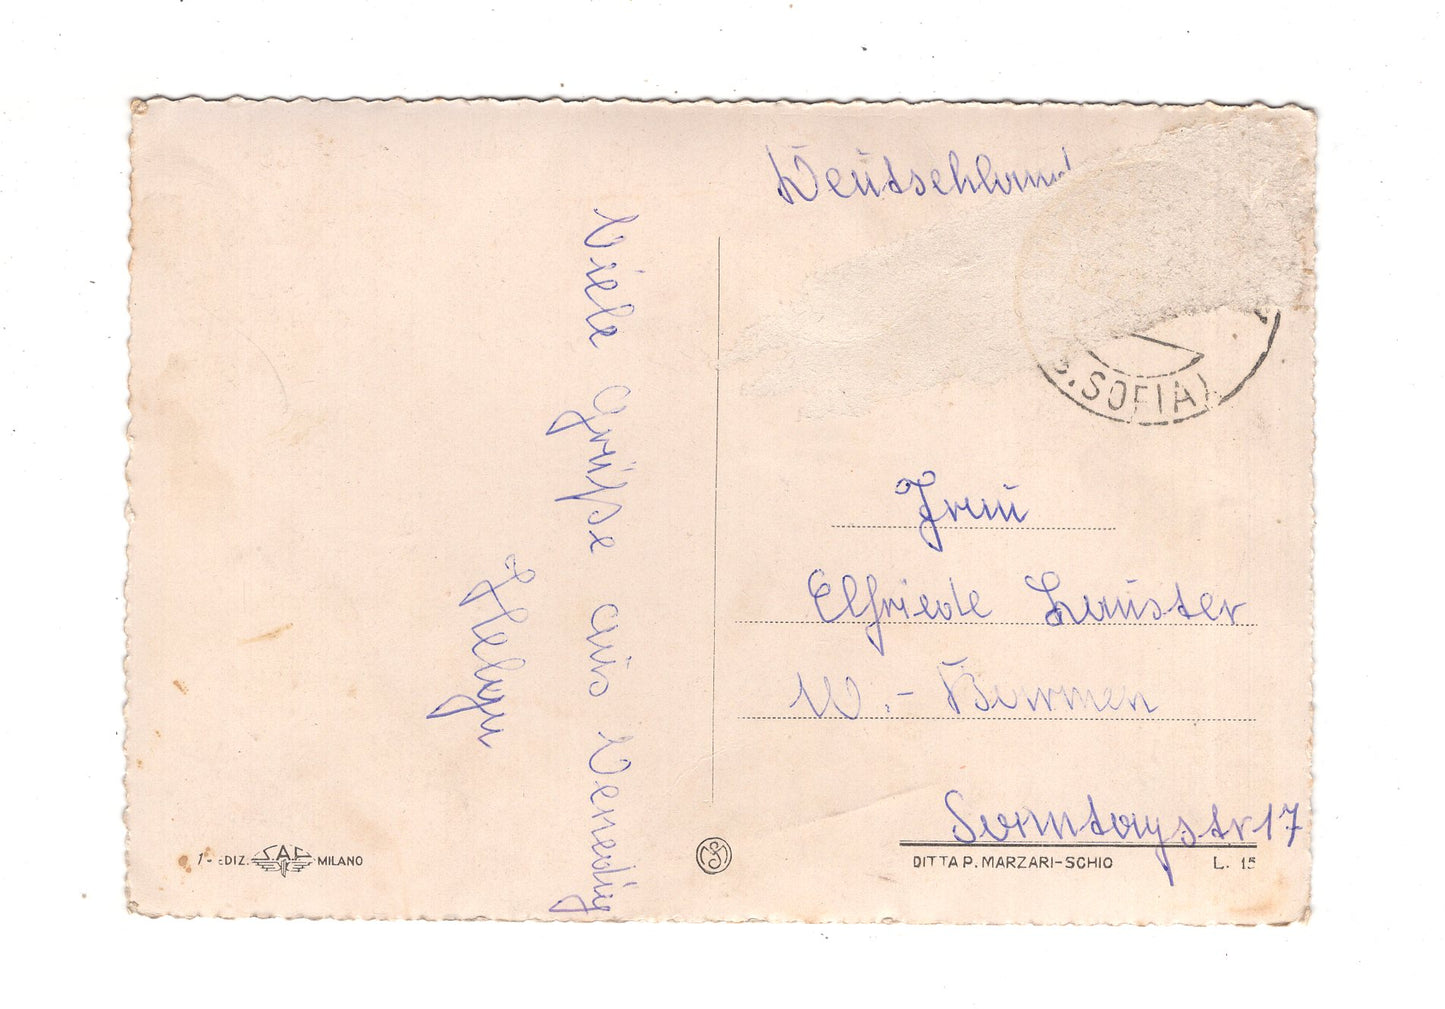 Deutschland
Viele Grüße aus Venedig
Helga
S. SOFIA)
Frau
Elfriede Lauister
W.- Barmen
Sonntagstr 17
1- EDIZ. SAF MILANO
DITTA P. MARZARI-SCHIO
L. 15